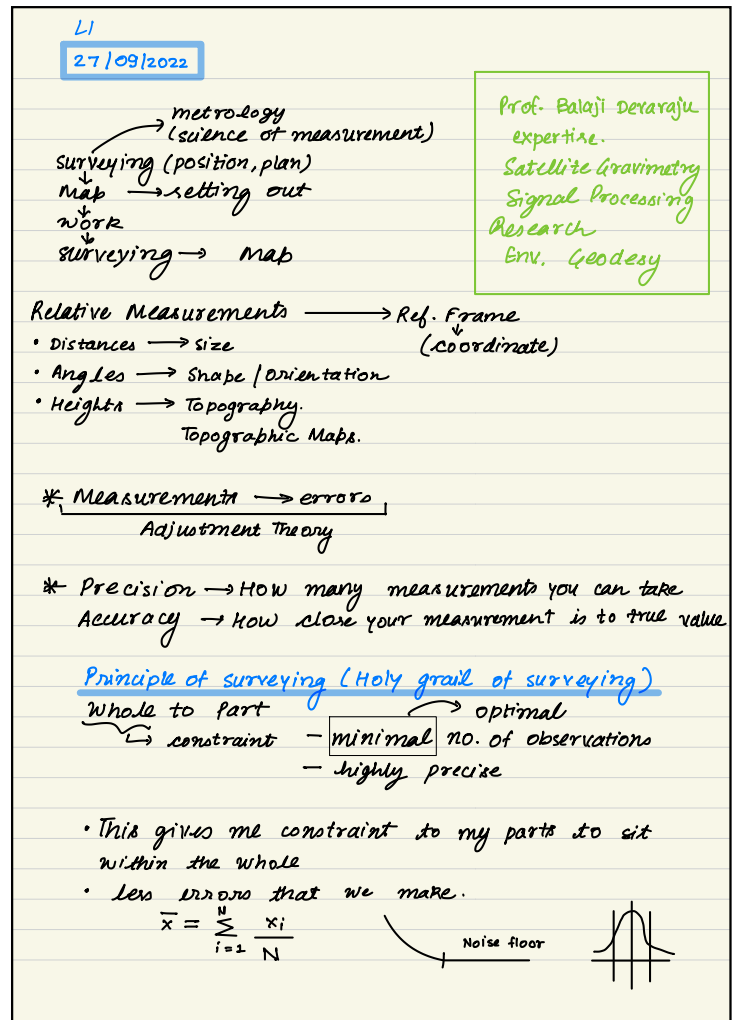 L1
27/09/2022
Prof. Balaji Devaraju
expertise.
Satellite Gravimetry
Signal Processing
Research
Env. Geodesy
metrology
(science of measurement)
surveying (position, plan)
Map → setting out
work
surveying → Map
Relative Measurements → Ref. Frame
(coordinate)
• Distances → size
• Angles → Shape / Orientation
• Heights → Topography.
Topographic Maps.
* Measurements → errors
Adjustment Theory
* Precision → How many measurements you can take
Accuracy → How close your measurement is to true value
Principle of surveying (Holy grail of surveying)
Whole to Part → optimal
↳ constraint – minimal no. of observations
– highly precise
• This gives me constraint to my parts to sit
within the whole
• less errors that we make.
x̄ = Σ_{i=1}^{N} xi / N
Noise floor